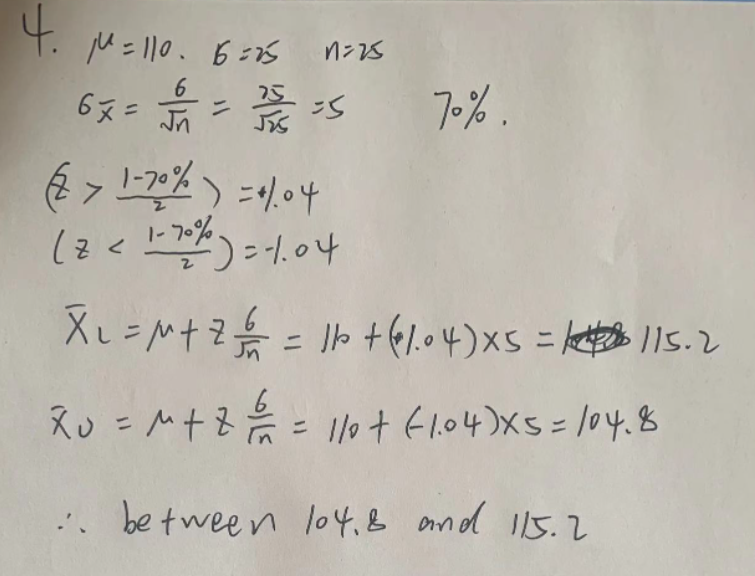 4. μ = 110. б = 25 n = 25
бx̄ = б/√n = 25/√25 = 5 70%.
(z > (1-70%)/2) = +1.04
(z < (1-70%)/2) = -1.04
X̄L = μ + z б/√n = 110 + (+1.04) × 5 = 115.2
X̄U = μ + z б/√n = 110 + (-1.04) × 5 = 104.8
∴ between 104.8 and 115.2